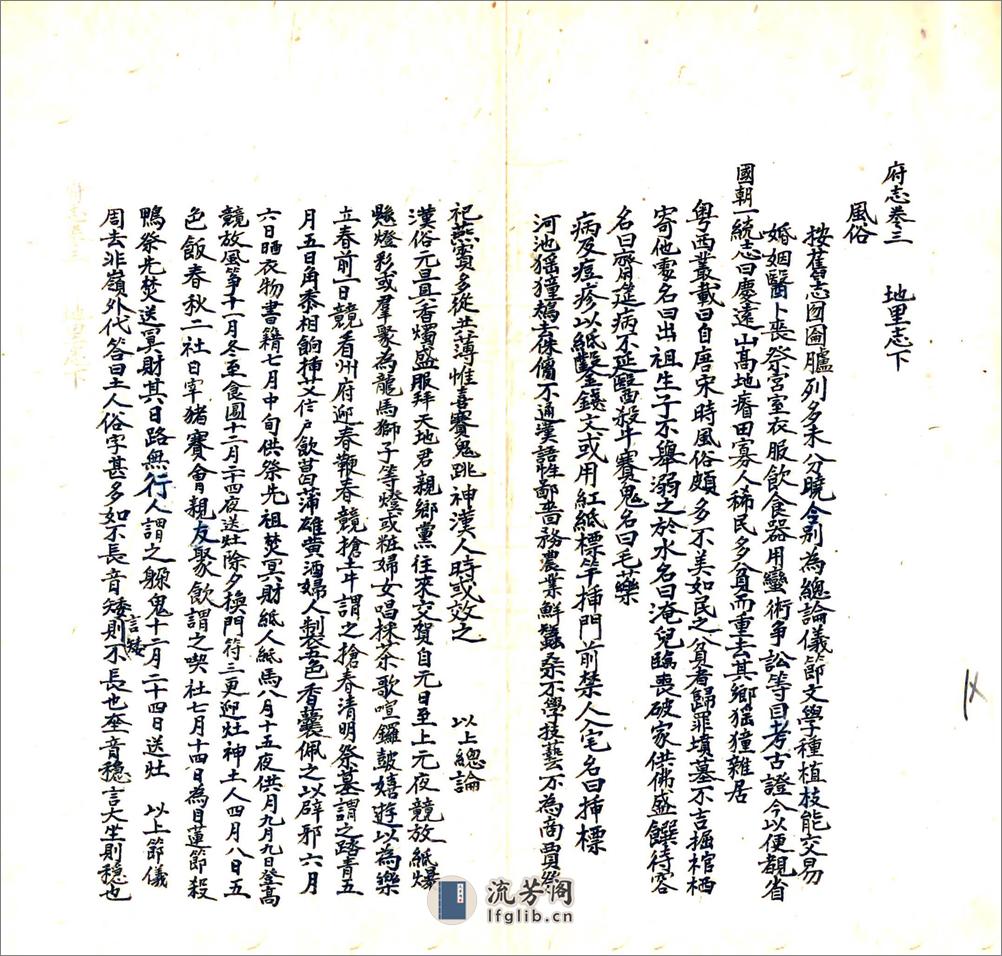 府志卷三　地里志下
風俗
按舊志囫圇臚列多未分曉今别為總論儀節文學種植技能交易
婚姻醫卜喪祭宮室衣服飲食器用蠻術争訟等目考古證今以便覩省
國朝一統志曰慶遠山高地瘠田寡人稀民多貧而重去其鄉猺獞雜居
粤西叢載曰自唐宋時風俗頗多不美如民之貧者歸罪墳墓不吉掘棺栖
寄他處名曰出祖生子不舉溺之於水名曰淹兒臨喪破家供佛盛饌待客
名曰齋筵病不延醫殺牛賽鬼名曰毛藥
病及痘疹以紙鑿金錢文或用紅紙標竿插門前禁人入宅名曰插標
河池猺獞鴂舌侏僑不通漢語性鄙嗇務農業鮮蠶桑不學技藝不為商賈祭
祀燕賓多從其薄惟喜賽鬼跳神漢人時或效之　以上總論
漢俗元旦具香燭盛服拜天地君親鄉黨往來交賀自元日至上元夜競放紙爆
懸燈彩或羣聚為龍馬獅子等燈或粧婦女唱採茶歌喧鑼皷嬉遊以為樂
立春前一日競看州府迎春鞭春競搶土牛謂之搶春清明祭墓謂之踏青五
月五日角黍相餉插艾於户飲菖蒲雄黄酒婦人製五色香囊佩之以辟邪六月
六日晒衣物書籍七月中旬供祭先祖焚冥財紙人紙馬八月十五夜供月九月九日登高
競放風筝十一月冬至食圓十二月二十四夜送灶除夕換門符三更迎灶神土人四月八日五
色飯春秋二社日宰猪賽會親友聚飲謂之喫社七月十四日為目蓮節殺
鴨祭先焚送冥財其日路無行人謂之躲鬼十二月二十四日送灶　以上節儀
周去非嶺外代答曰土人俗字甚多如不長音矮言矮則不長也坐音穩言大坐則穩也
流芳阁
lfglib.cn